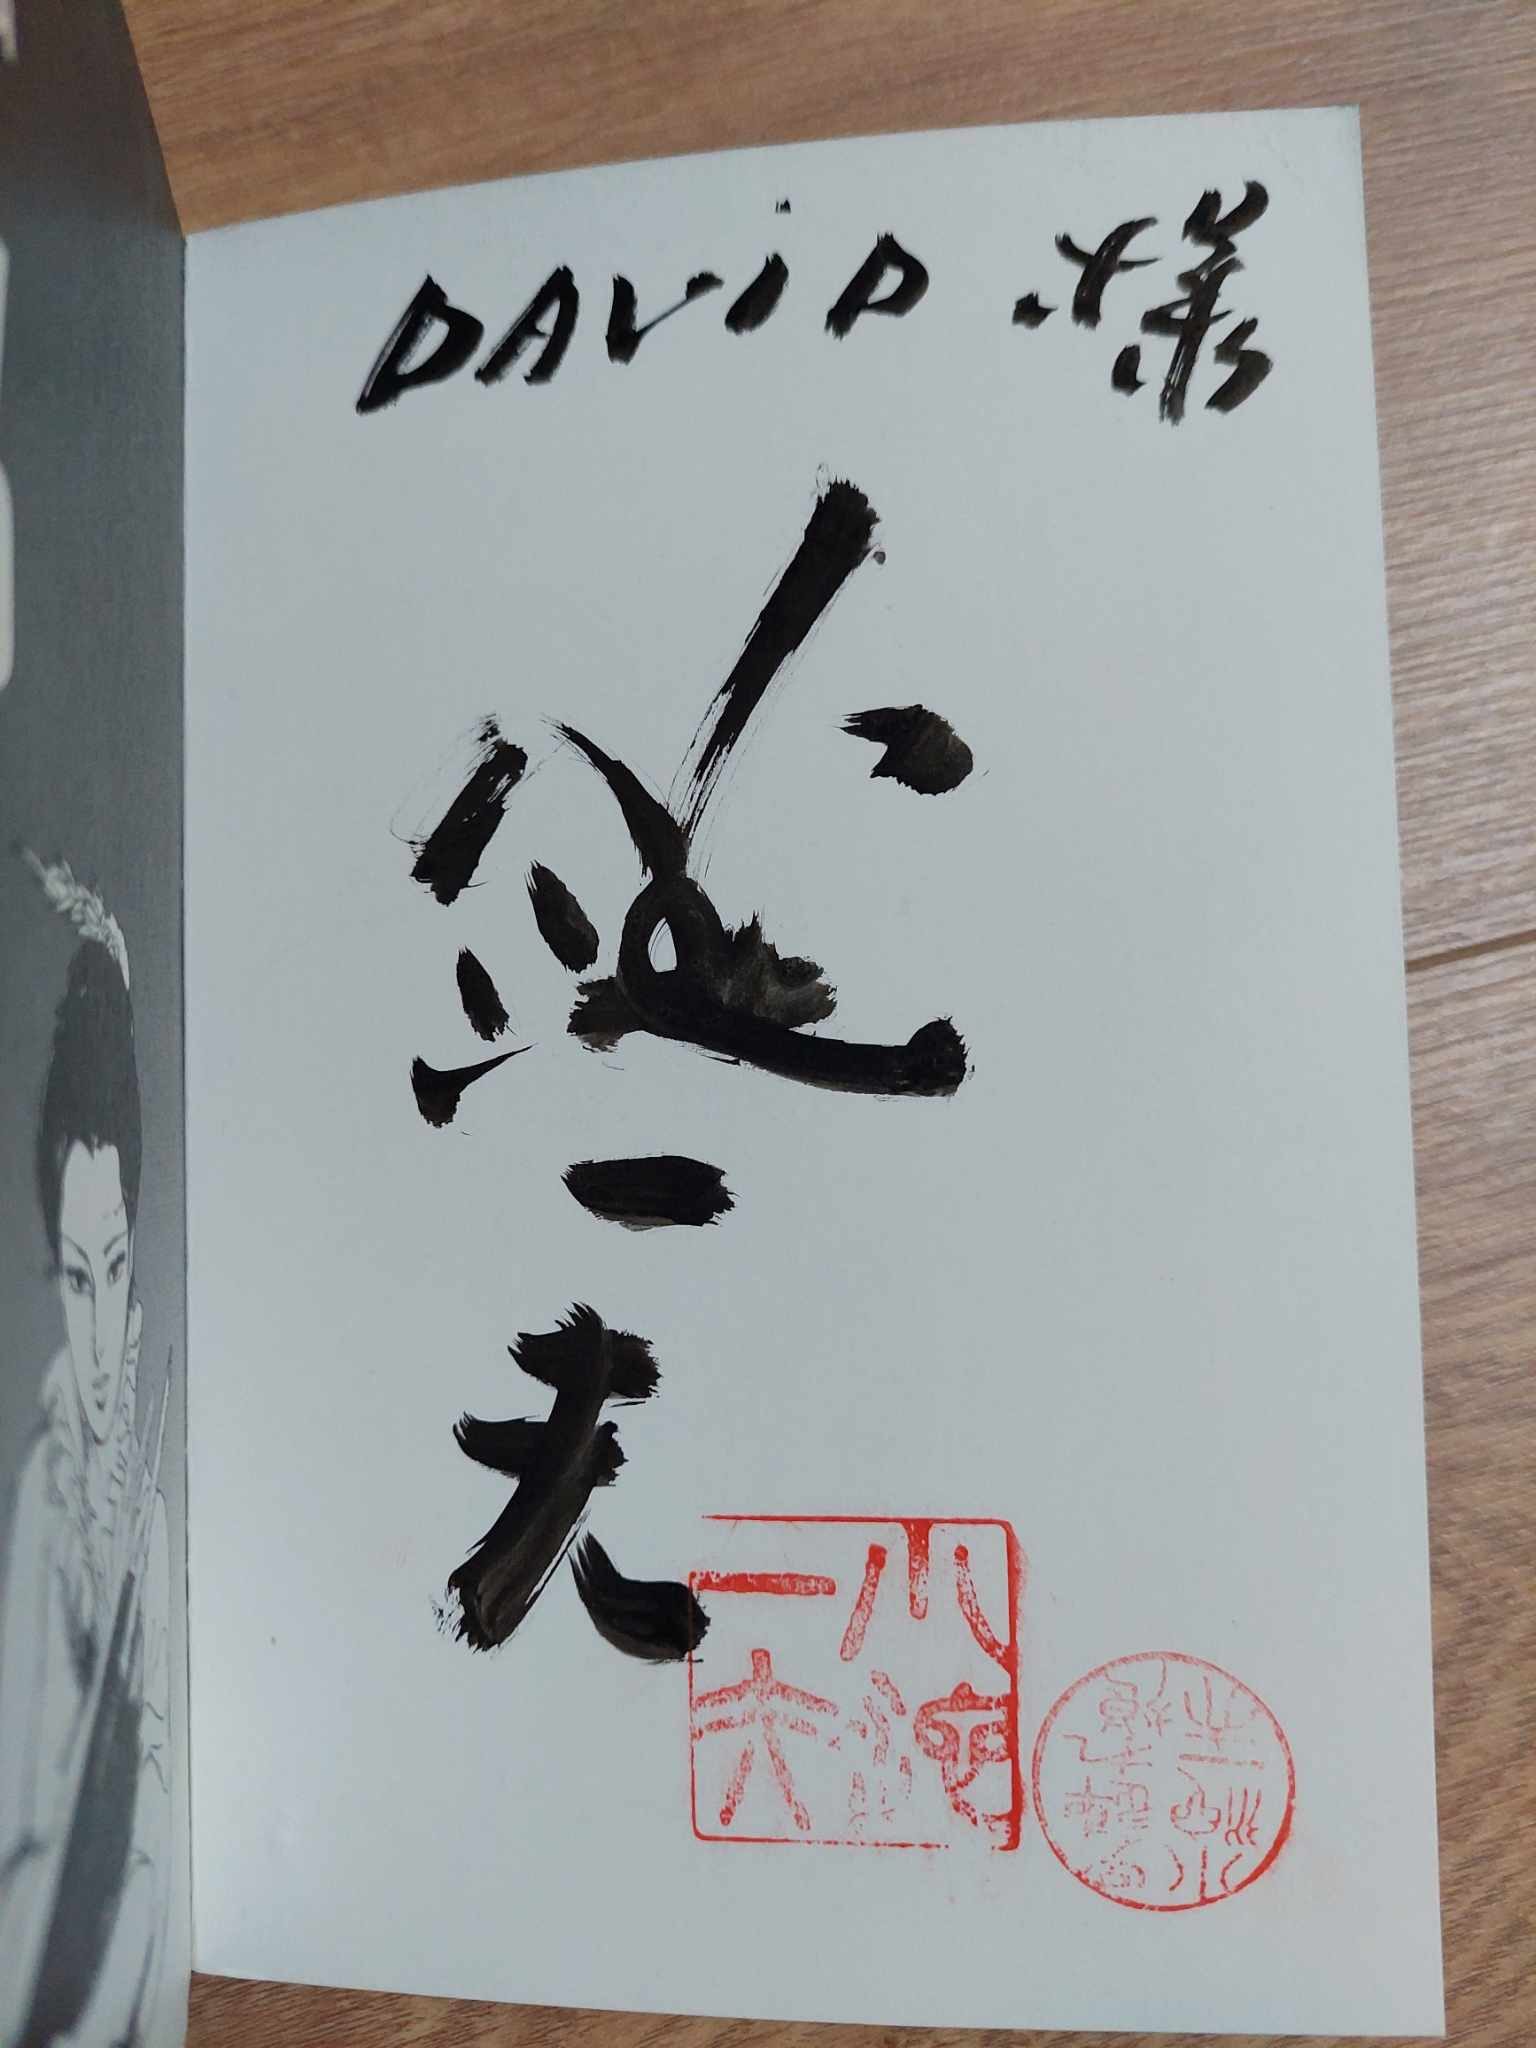 DAVID様
小池一夫
小池
一夫